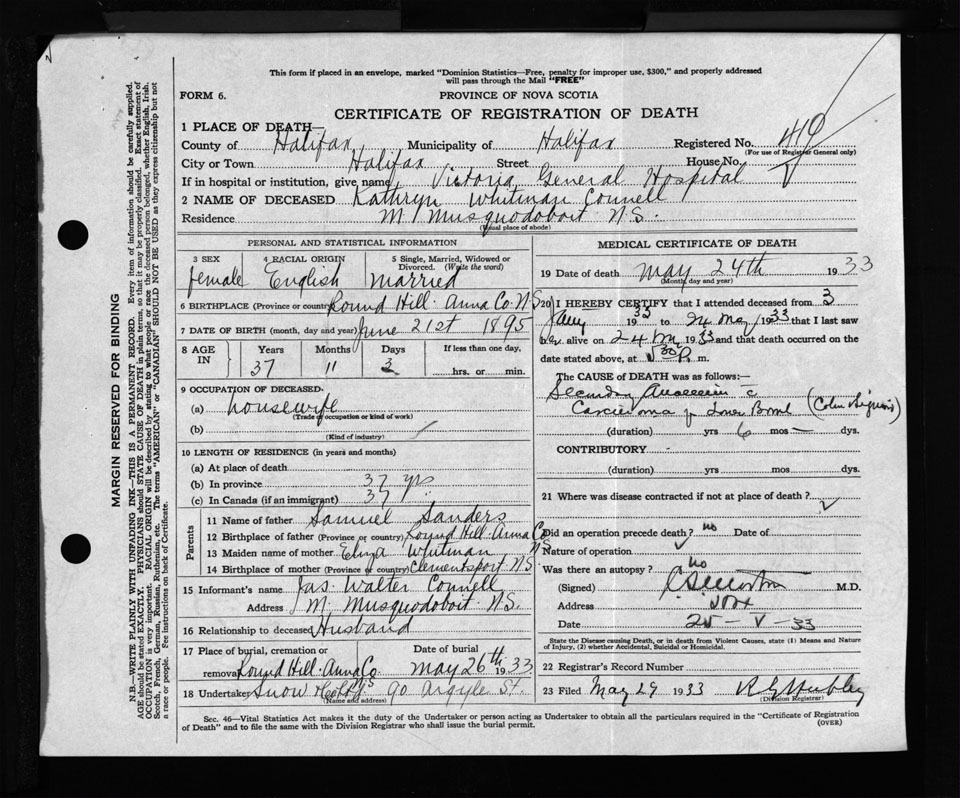 This form if placed in an envelope, marked "Dominion Statistics—Free, penalty for improper use, $300," and properly addressed
will pass through the Mail "FREE"
FORM 6.
PROVINCE OF NOVA SCOTIA
CERTIFICATE OF REGISTRATION OF DEATH
1 PLACE OF DEATH—
County of Halifax Municipality of Halifax Registered No.
(For use of Registrar General only)
City or Town Halifax Street House No.
If in hospital or institution, give name Victoria General Hospital
2 NAME OF DECEASED Kathryn Whitman Connell
Residence M. Musquodoboit N.S.
(Usual place of abode)
PERSONAL AND STATISTICAL INFORMATION
3 SEX 4 RACIAL ORIGIN 5 Single, Married, Widowed or
Divorced. (Write the word)
female English Married
6 BIRTHPLACE (Province or country) Round Hill Anna Co. N.S.
7 DATE OF BIRTH (month, day and year) June 21st 1895
8 AGE IN Years Months Days If less than one day,
37 11 3 hrs. or min.
9 OCCUPATION OF DECEASED
(a) housewife
(Trade or occupation or kind of work)
(b)
(Kind of industry)
10 LENGTH OF RESIDENCE (in years and months)
(a) At place of death
(b) In province 37 yrs
(c) In Canada (if an immigrant) 37 "
Parents
11 Name of father Samuel Sanders
12 Birthplace of father (Province or country) Round Hill Anna Co. N.S.
13 Maiden name of mother Eliza Whitman
14 Birthplace of mother (Province or country) Clementsport N.S.
15 Informant's name Jas. Walter Connell
Address M. Musquodoboit N.S.
16 Relationship to deceased Husband
17 Place of burial, cremation or Date of burial
removal Round Hill Anna Co. N.S. May 26th 1933
18 Undertaker Snow 90 Argyle St.
(Name and address)
MEDICAL CERTIFICATE OF DEATH
19 Date of death May 24th 1933
(Month, day and year)
20 I HEREBY CERTIFY that I attended deceased from 3
1933 to 24 May 1933 that I last saw
her alive on 24 May 1933 and that death occurred on the
date stated above, at P. m.
The CAUSE OF DEATH was as follows:—
Secondary
Carcinoma of Lower Bowel
(duration) yrs 6 mos — dys.
CONTRIBUTORY
(duration) yrs mos dys.
21 Where was disease contracted if not at place of death?
Did an operation precede death? no Date of
Nature of operation
Was there an autopsy? no
(Signed) M.D.
Address
Date 25 – V – 33
State the Disease causing Death, or in death from Violent Causes, state (1) Means and Nature
of Injury, (2) whether Accidental, Suicidal or Homicidal.
22 Registrar's Record Number
23 Filed May 29 1933
(Division Registrar)
Sec. 46—Vital Statistics Act makes it the duty of the Undertaker or person acting as Undertaker to obtain all the particulars required in the "Certificate of Registration
of Death" and to file the same with the Division Registrar who shall issue the burial permit.
(OVER)
MARGIN RESERVED FOR BINDING
N.B.—WRITE PLAINLY WITH UNFADING INK—THIS IS A PERMANENT RECORD. Every item of information should be carefully supplied.
AGE should be stated EXACTLY. PHYSICIANS should STATE CAUSE OF DEATH in plain terms, so that it may be properly classified. Exact statement of
OCCUPATION is very important. RACIAL ORIGIN will be described by stating to what people or race the deceased person belonged, whether English, Irish,
Scotch, French, German, Russian, Ruthenian, etc. The terms "AMERICAN" or "CANADIAN" SHOULD NOT BE USED as they express citizenship but not
a race or people. See instructions on back of Certificate.